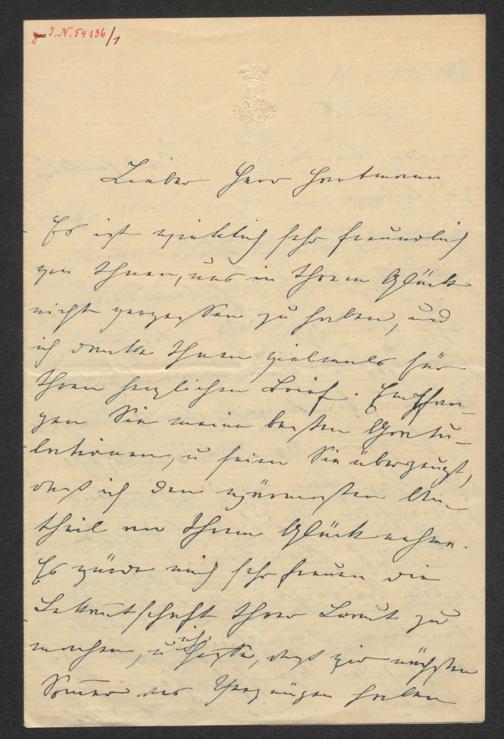 J.N. 54136/1
Lieber Herr Hartmann
Es ist wirklich sehr freundlich
von Ihnen, uns in Ihrem Glück
nicht vergessen zu haben, und
ich danke Ihnen vielmals für
Ihren herzlichen Brief. Empfan-
gen Sie meine besten Gratu-
lationen, u seien Sie überzeugt,
dass ich den wärmsten An-
theil an Ihrem Glück nehme.
Es würde mich sehr freuen die
Bekanntschaft Ihrer Braut zu
machen, u ich hoffe, dass wir nächsten
Sommer das Vergnügen haben